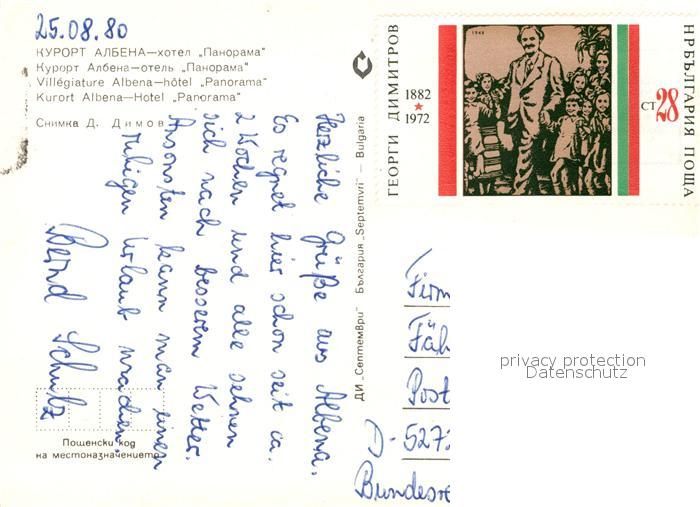 25.08.80
КУРОРТ АЛБЕНА—хотел „Панорама“
Курорт Албена—отель „Панорама“
Villégiature Albena—hôtel „Panorama“
Kurort Albena—Hotel „Panorama“
Снимка Д. Димов
Herzliche Grüße aus Albena.
Es regnet hier schon seit ca.
2 Wochen und alle sehnen
sich nach besserem Wetter.
Ansonsten kann man einen
ruhigen Urlaub machen.
Bernd Schulz
Пощенски код
на местоназначението
ДИ „Септември“ България „Septemvri“ — Bulgaria
ГЕОРГИ ДИМИТРОВ
1882
1972
НР БЪЛГАРИЯ ПОЩА
СТ 28
Firm
Fäh
Post
D-527
Bundesre
privacy protection
Datenschutz